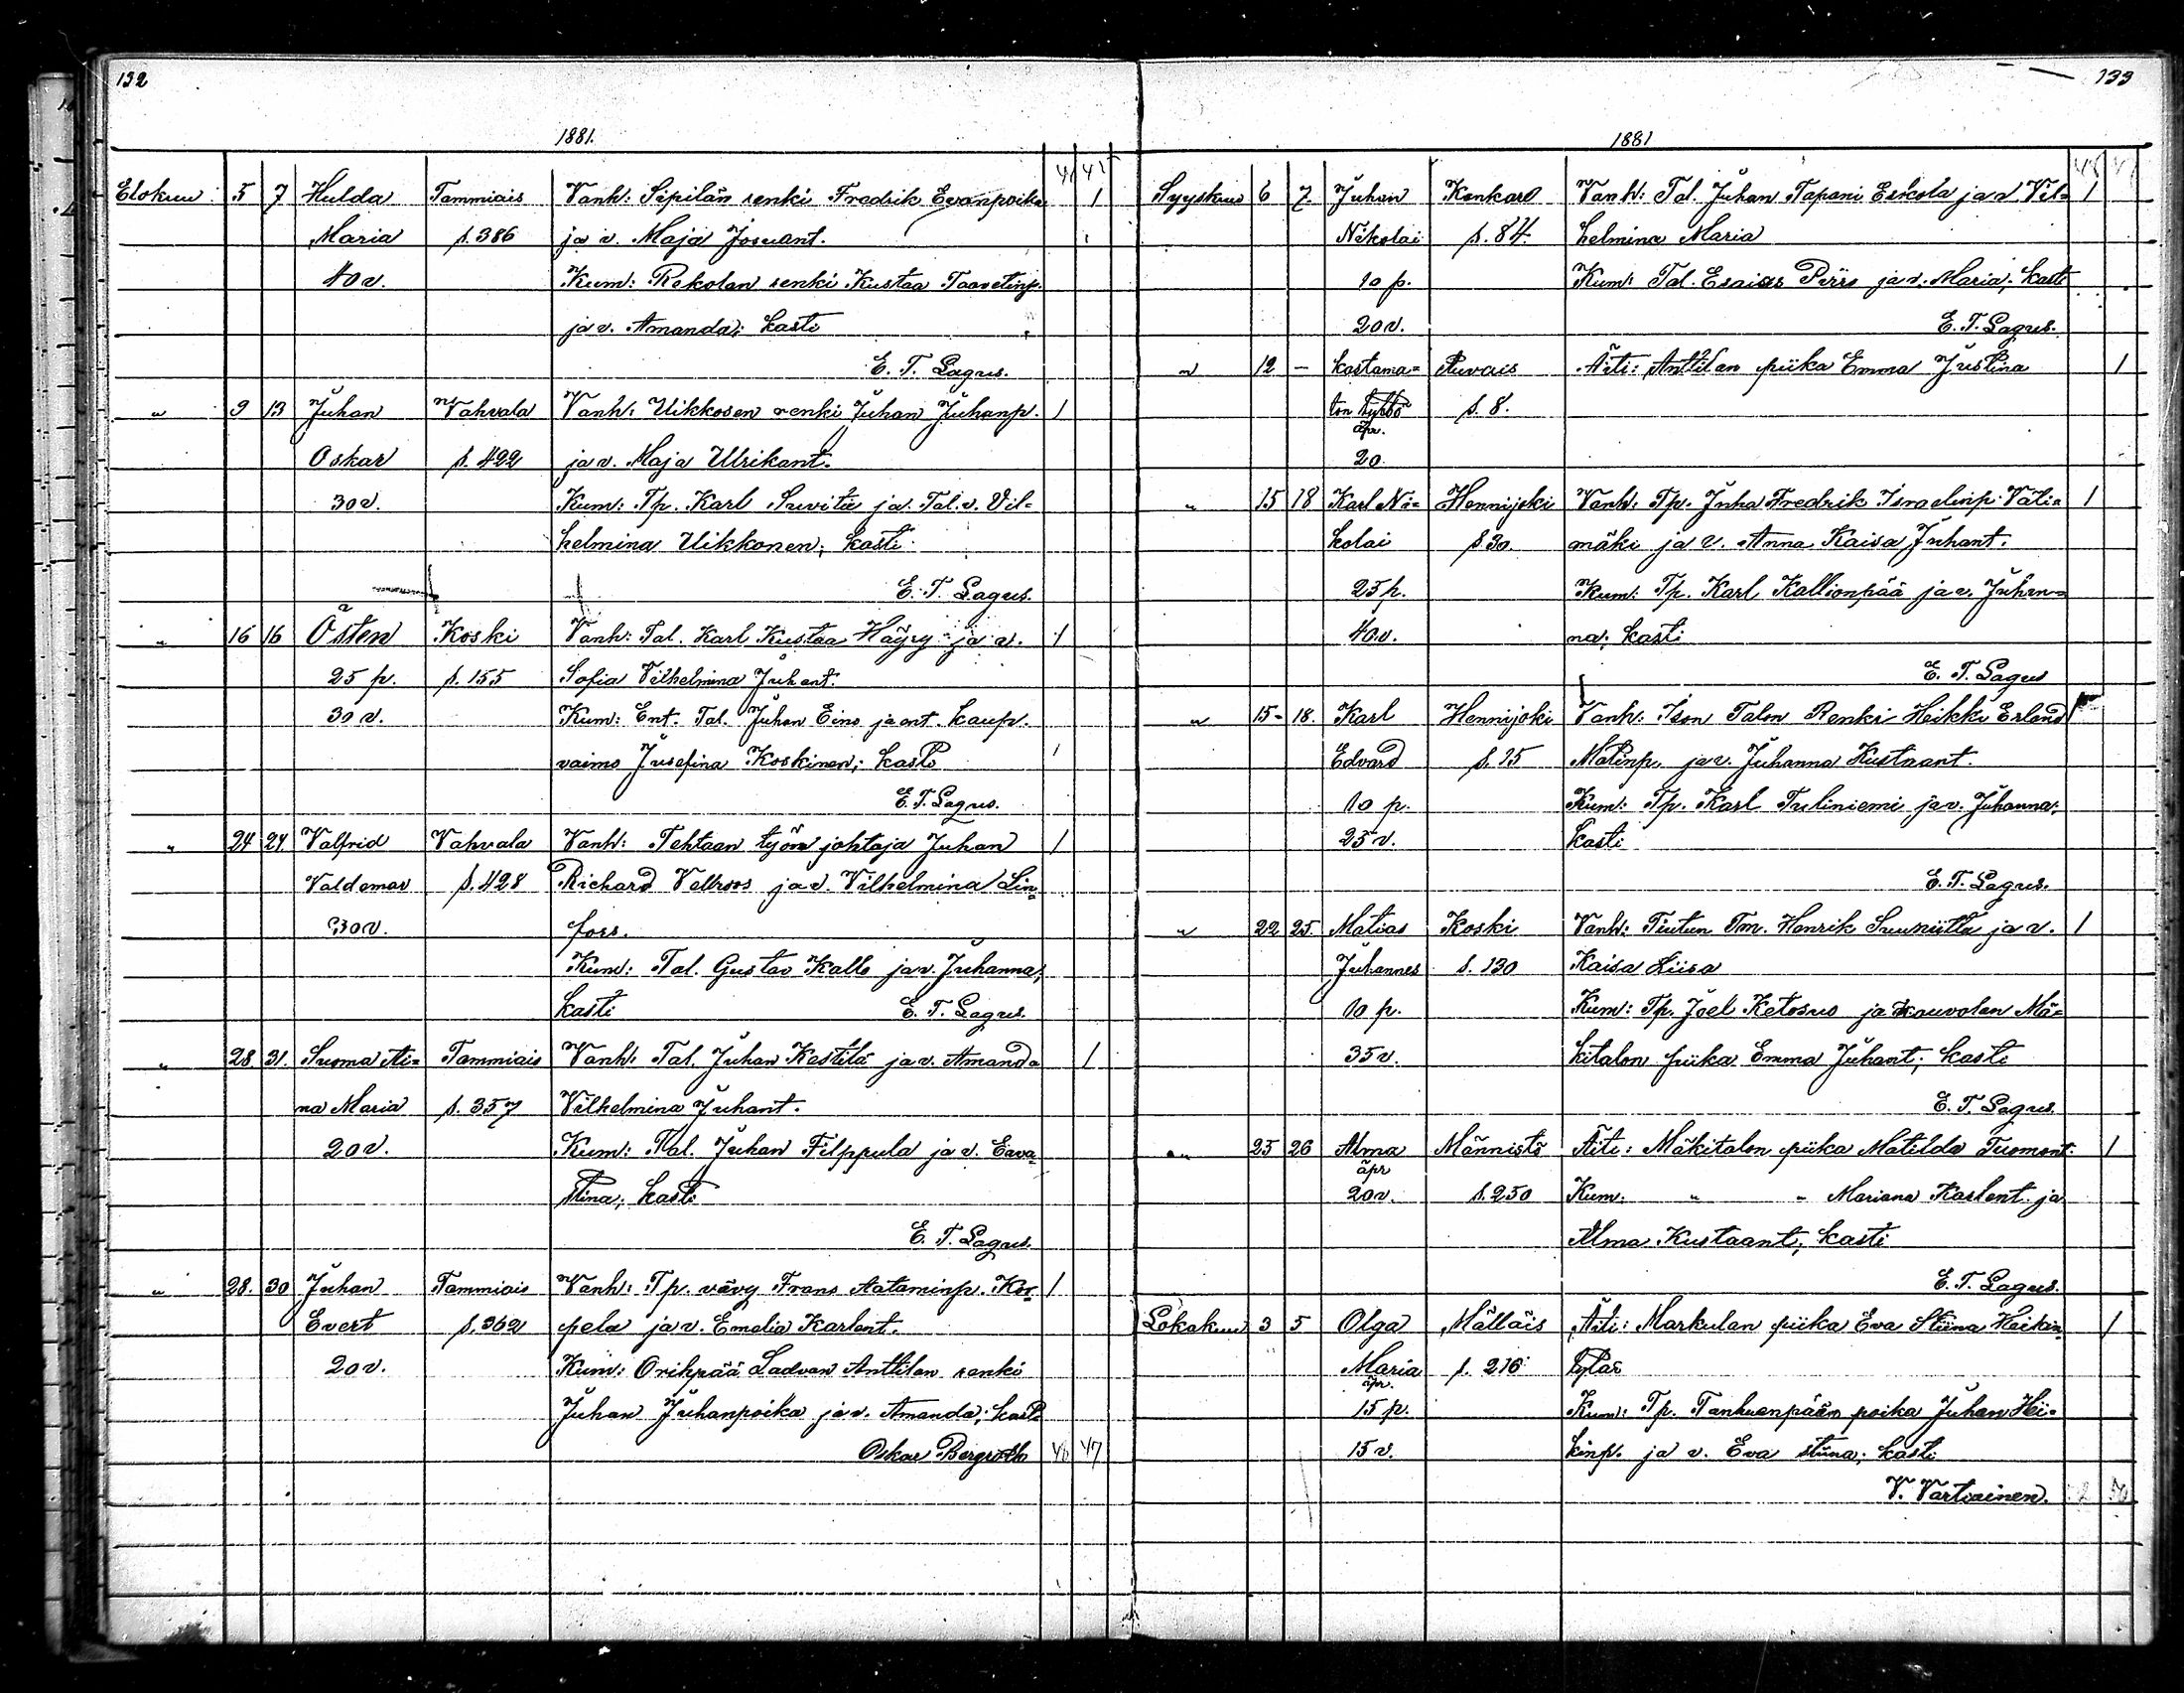 132
1881.
41 41
Elokuu 5 7 Hulda Tammiais Vanh: Sipilän renki Fredrik Evanpoika 1
Maria s. 386 ja v. Maja Josuant.
40 v. Kum: Rekolan renki Kustaa Taavetinp.
ja v. Amanda; kasti
E. T. Lagus.
" 9 13 Juhan Vahvala Vanh: Uikkosen renki Juhan Juhanp. 1
Oskar s. 422 ja v. Maja Ulrikant.
30 v. Kum: Tp. Karl Suvitie ja Tal. v. Vil=
helmina Uikkonen; kasti
E. T. Lagus.
" 16 16 Östen Koski Vanh: Tal. Karl Kustaa Häyry ja v. 1
25 p. s. 155 Sofia Vilhelmina Juhant.
30 v. Kum: Ent. Tal. Juhan Eino ja ent. kaup.
vaimo Jusefina Koskinen; kasti
E. T. Lagus.
" 24 24. Valfrid Vahvala Vanh: Tehtaan työn johtaja Juhan 1
Valdemar s. 428 Richard Vellroos ja v. Vilhelmina Lin=
30 v. fors.
Kum: Tal. Gustav Kallo ja v. Juhanna;
kasti E. T. Lagus.
" 28. 31. Suoma Ai= Tammiais Vanh: Tal. Juhan Kestilä ja v. Amanda 1
na Maria s. 357 Vilhelmina Juhant.
20 v. Kum: Tal. Juhan Filppula ja v. Eava
Stina; kasti
E. T. Lagus.
" 28. 30 Juhan Tammiais Vanh: Tp. vävy Frans Aataminp. Kor= 1
Evert s. 362 pela ja v. Emelia Karlent.
20 v. Kum: Orihpää Ladvan Anttilan renki
Juhan Juhanpoika ja v. Amanda; kasti
Oskar Bergroth 46 47
133
1881
Syyskuu 6 7. Juhan Kankare Vanh: Tal. Juhan Tapani Eskola ja v. Vil= 1
Nikolai s. 84. helmina Maria
10 p. Kum: Tal. Esaias Pirro ja v. Maria; kasti
20 v. E. T. Lagus.
" 12 - kastama= Auvais Äiti: Anttilan piika Emma Justina 1
ton tyttö s. 8.
äpr.
20.
" 15 18 Karl Ni= Hennijoki Vanh: Tp. Juha Fredrik Israelinp. Väli= 1
kolai s. 30. mäki ja v. Anna Kaisa Juhant.
25 p. Kum: Tp. Karl Kallionpää ja v. Juhan=
40 v. na; kasti
E. T. Lagus
" 15- 18. Karl Hennijoki Vanh: Ison Talon Renki Heikki Erland
Edvard s. 15 Matinp. ja v. Juhanna Kustaant.
10 p. Kum: Tp. Karl Tuliniemi ja v. Juhanna;
25 v. kasti
E. T. Lagus.
" 22 25. Matias Koski Vanh: Tiutun Tm. Henrik Suuniittu ja v. 1
Juhannes s. 130 Kaisa Liisa
10 p. Kum: Tp. Joel Ketosuo ja Kouvolan Mä=
35 v. kitalon piika Emma Juhant; kasti
E. T. Lagus.
" 25 26 Alma Männistö Äiti: Mäkitalon piika Matilda Tuomant. 1
äpr
20 v. s. 250 Kum: " " Mariana Karlent. ja
Alma Kustaant; kasti
E. T. Lagus.
Lokakuu 3 5 Olga Mälläis Äiti: Markulan piika Eva Stiina Heikin 1
Maria s. 216 tytär
äpr.
15 p. Kum: Tp. Tanhuanpään poika Juhan Hei=
15 v. kinp. ja v. Eva Stiina; kasti
V. Vartiainen. 50